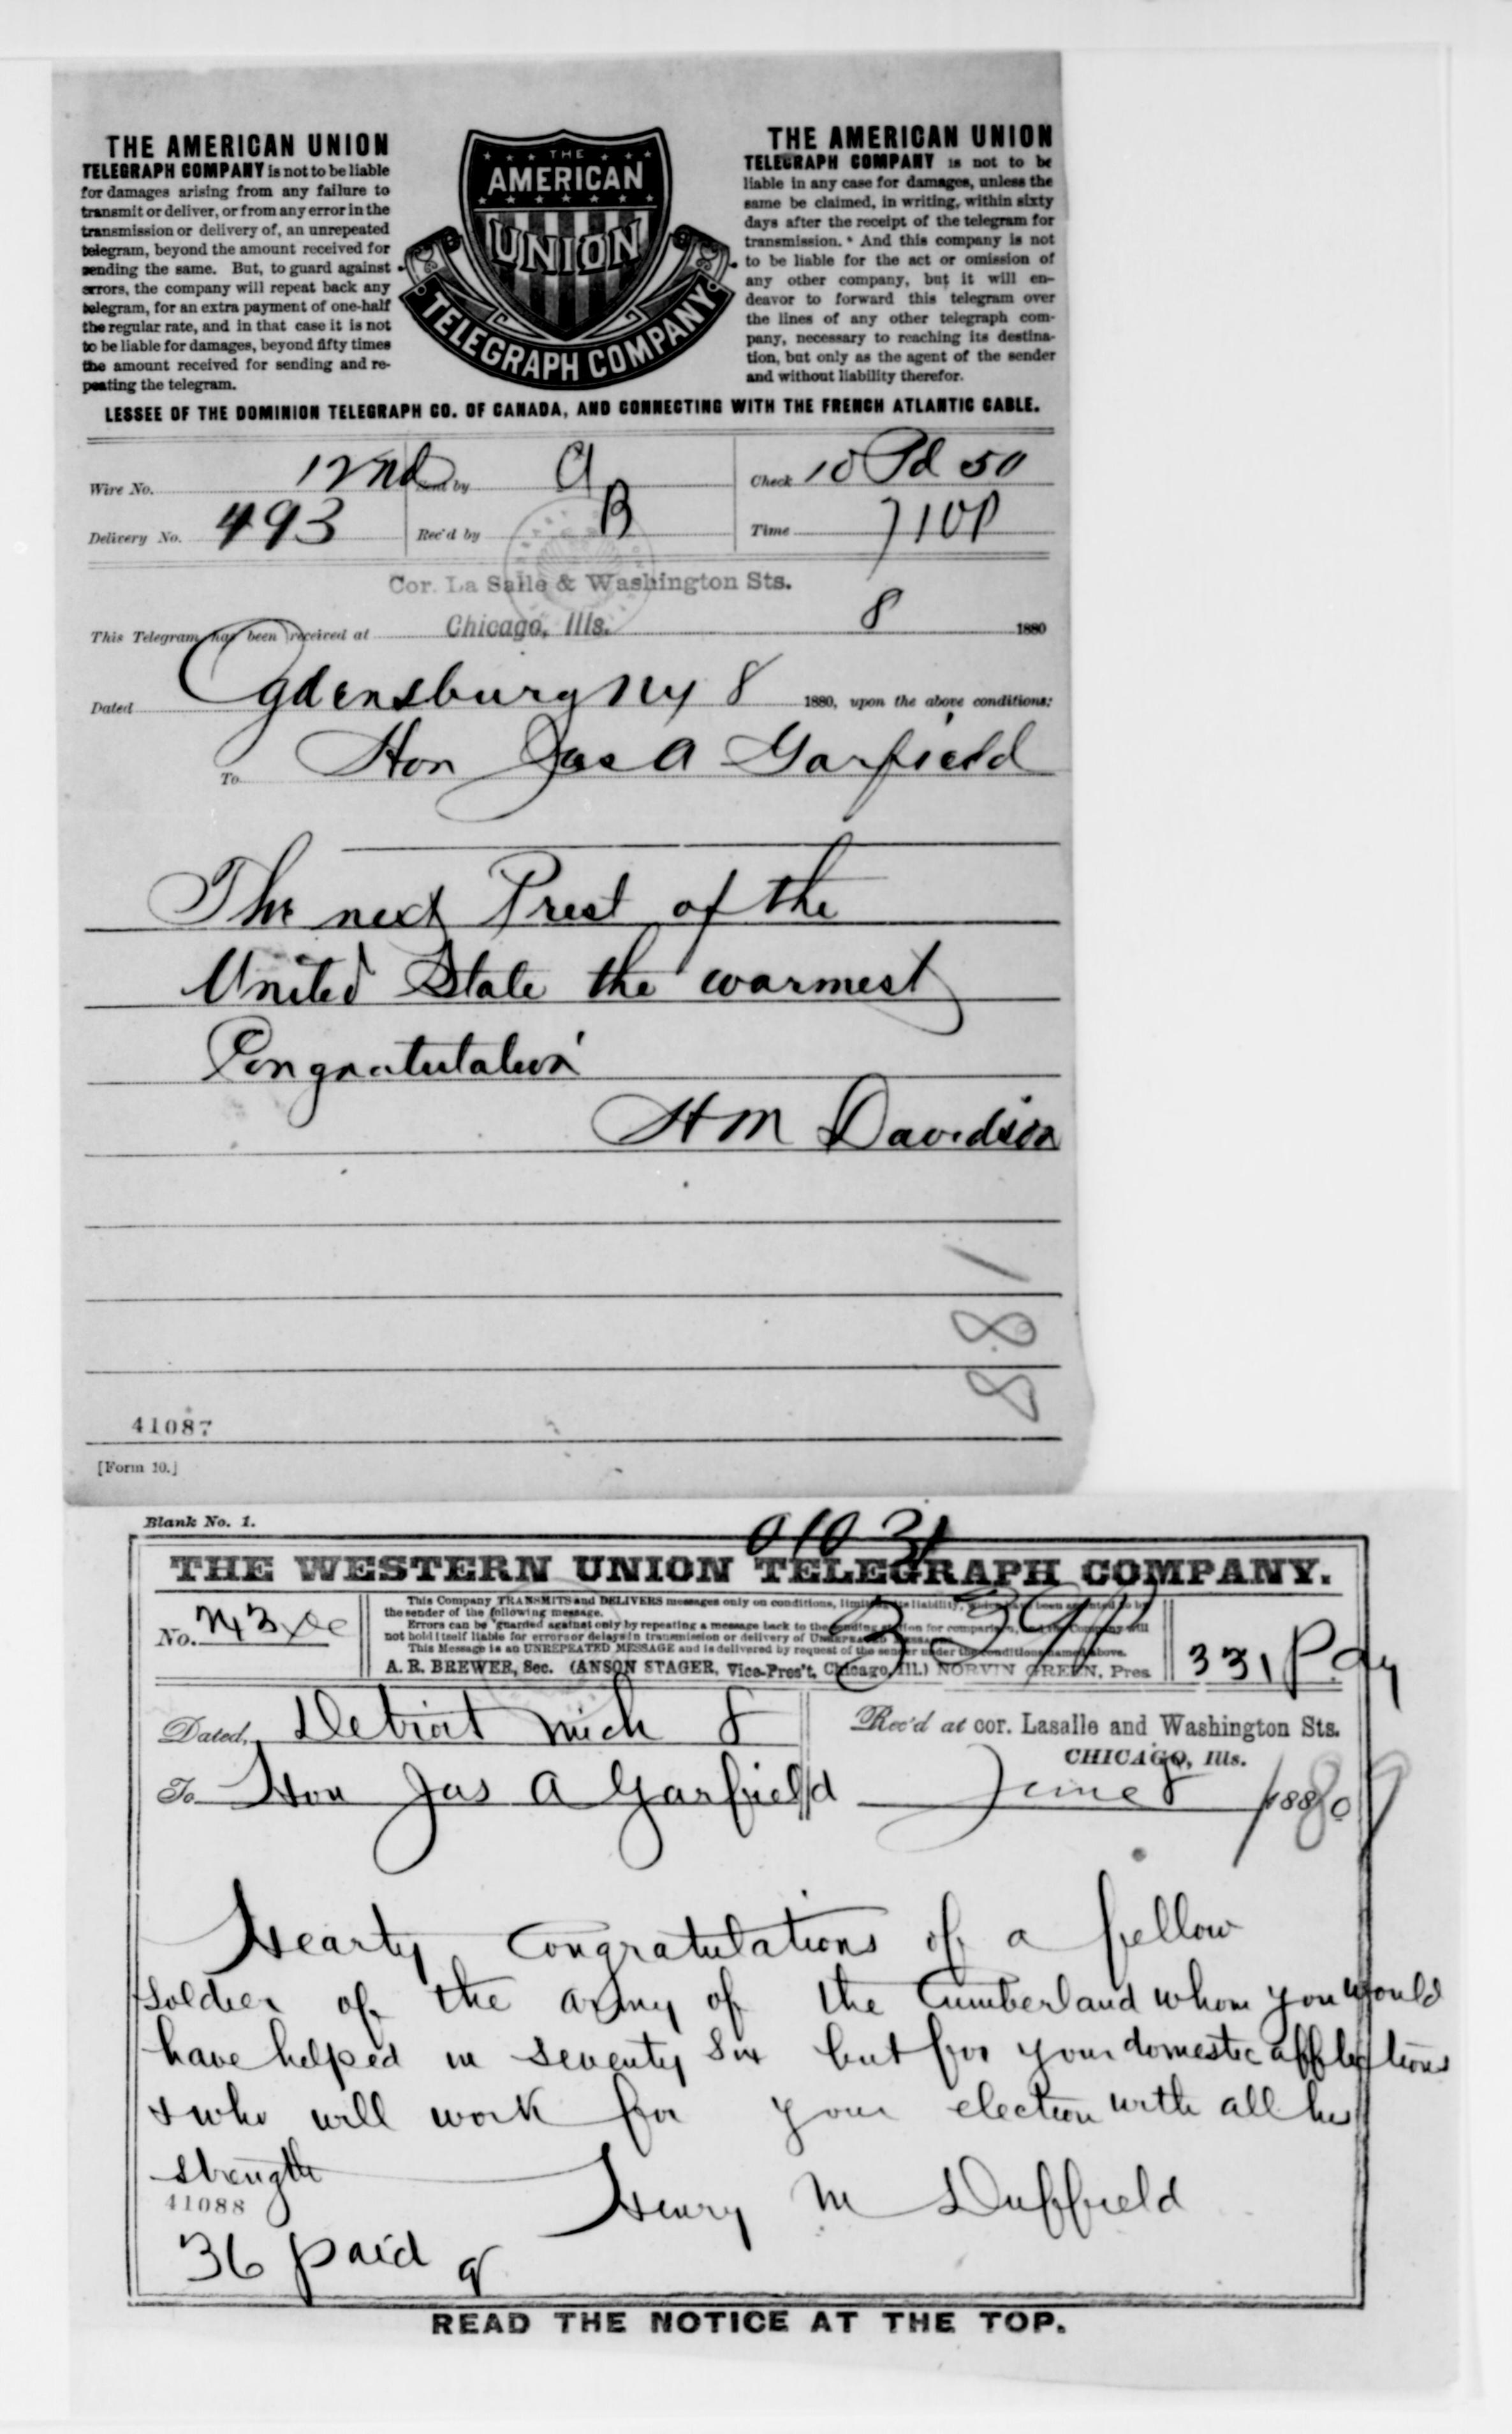 THE AMERICAN UNION
TELEGRAPH COMPANY is not to be liable
for damages arising from any failure to
transmit or deliver, or from any error in the
transmission or delivery of, an unrepeated
telegram, beyond the amount received for
sending the same. But, to guard against
errors, the company will repeat back any
telegram, for an extra payment of one-half
the regular rate, and in that case it is not
to be liable for damages, beyond fifty times
the amount received for sending and re-
peating the telegram.
THE
AMERICAN
UNION
TELEGRAPH COMPANY
THE AMERICAN UNION
TELEGRAPH COMPANY is not to be
liable in any case for damages, unless the
same be claimed, in writing, within sixty
days after the receipt of the telegram for
transmission. And this company is not
to be liable for the act or omission of
any other company, but it will en-
deavor to forward this telegram over
the lines of any other telegraph com-
pany, necessary to reaching its destina-
tion, but only as the agent of the sender
and without liability therefor.
LESSEE OF THE DOMINION TELEGRAPH CO. OF CANADA, AND CONNECTING WITH THE FRENCH ATLANTIC CABLE.
Wire No. 12nd Sent by a Check 10 Pd 50
Delivery No. 493 Rec'd by B Time 710P
Cor. La Salle & Washington Sts.
This Telegram has been received at Chicago, Ills. 8 1880
Dated Ogdensburg NY 8 1880, upon the above conditions:
To Hon Jas A Garfield
The next Prest of the
United State the warmest
Congratulation
H M Davidson
881
41087
[Form 10.]
Blank No. 1.
THE WESTERN UNION TELEGRAPH COMPANY.
This Company TRANSMITS and DELIVERS messages only on conditions, limiting its liability, which have been assented to by
the sender of the following message.
Errors can be guarded against only by repeating a message back to the sending station for comparison, and the Company will
not hold itself liable for errors or delays in transmission or delivery of UNREPEATED MESSAGES
This Message is an UNREPEATED MESSAGE and is delivered by request of the sender under the conditions named above.
A. R. BREWER, Sec. (ANSON STAGER, Vice-Pres't, Chicago, Ill.) NORVIN GREEN, Pres
No.
331
Dated, Detroit Mich 8
Rec'd at cor. Lasalle and Washington Sts.
CHICAGO, Ills.
To Hon Jas A Garfield
June 8 1880
Hearty Congratulations of a fellow
soldier of the army of the Cumberland whom you would
have helped in seventy six but for your domestic afflictions
& who will work for your election with all his
strength
Henry M Duffield
41088
36 paid
READ THE NOTICE AT THE TOP.